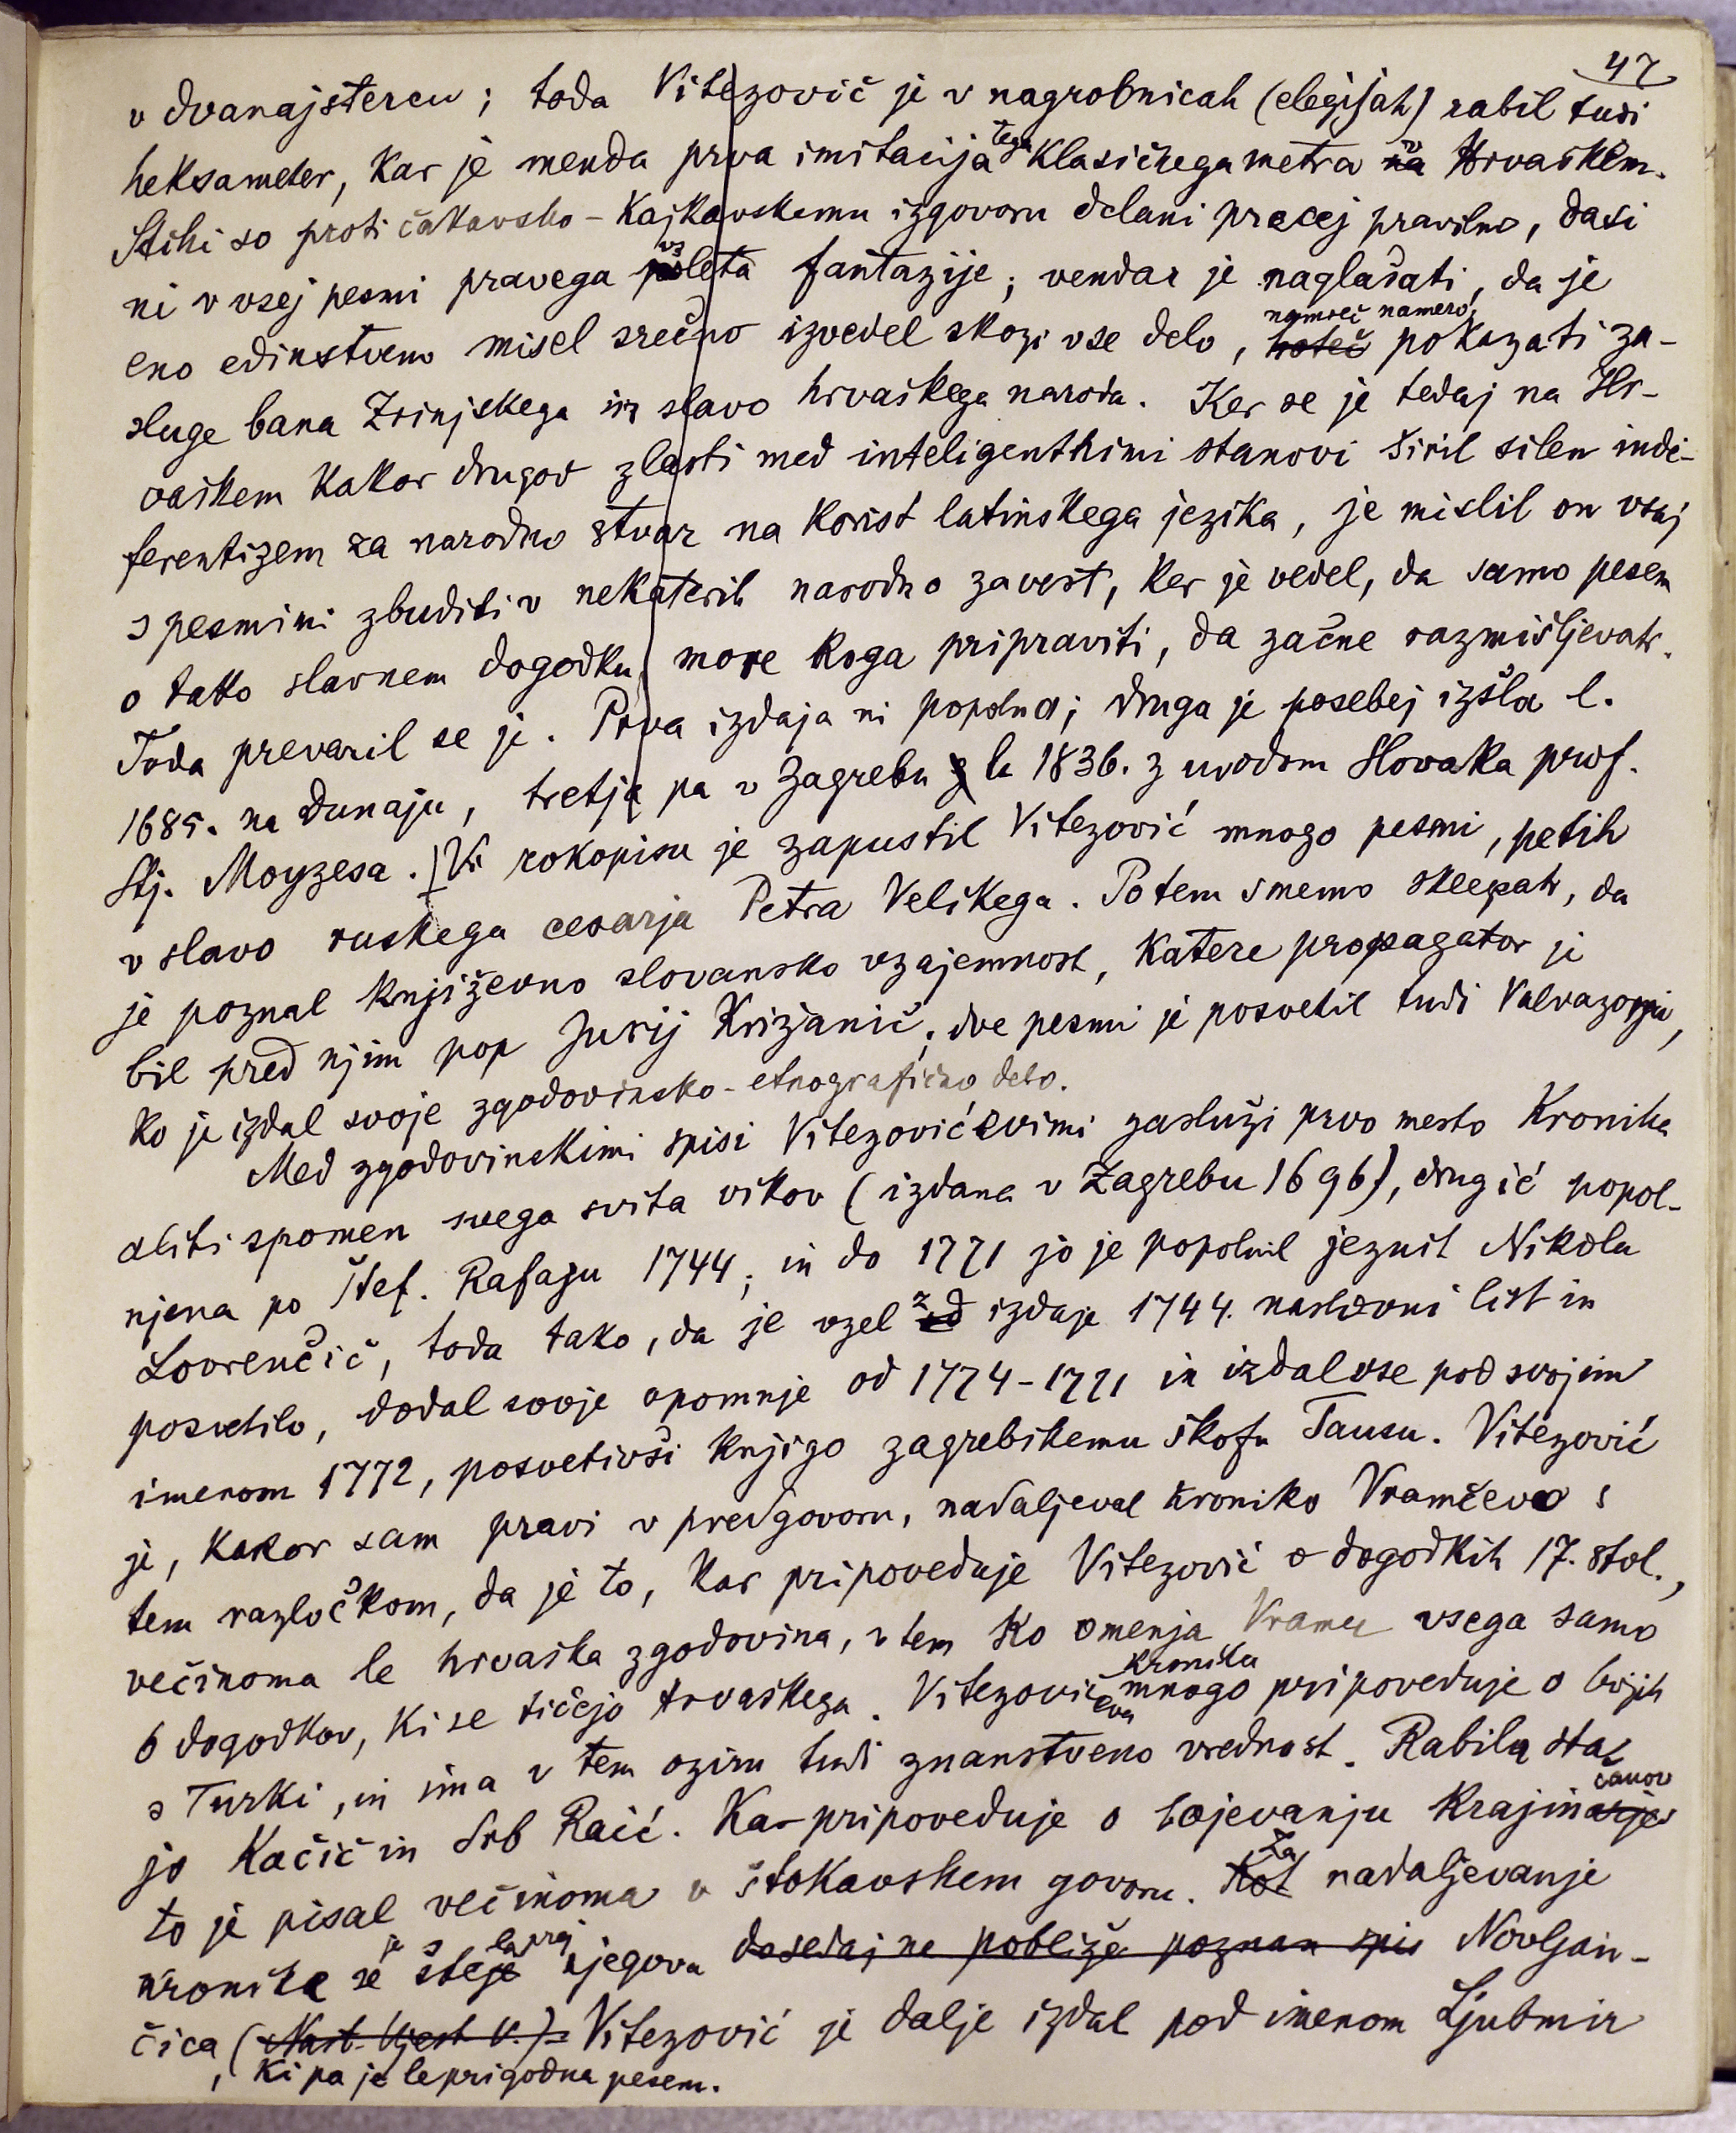 47
v dvanajstercu; toda Vitezovič je v nagrobnicah (elegijah) rabil tudi
heksameter, kar je menda prva imitacija tega klasičnega metra na v Hrvaškem.
Stihi so proti čakavsko-kajkavskemu izgovoru delani precej pravilno, dasi
ni v vsej pesmi pravega vzleta fantazije; vendar je naglašati, da je
eno edinstveno misel srečno izvedel skozi vse delo, hoteč namreč namero, pokazati za-
sluge bana Zrinjskega in slavo hrvaškega naroda. Ker se je tedaj na Hr-
vaškem kakor drugod zlasti med inteligentnimi stanovi širil silen indi-
ferentizem za narodno stvar na korist latinskega jezika, je mislil on vsaj
s pesmimi zbuditi v nekaterih narodno zavest, ker je vedel, da samo pesem
o tako slavnem dogodku more koga pripraviti, da začne razmišljevati.
Toda prevaril se je. Prva izdaja ni popolna; druga je posebej izšla l.
1685. na Dunaju, tretja pa v Zagrebu l. 1836. z uvodom Slovaka prof.
Stj. Moyzesa. V rokopisu je zapustil Vitezović mnogo pesmi, petih
v slavo ruskega cesarja Petra Velikega. Potem smemo sklepati, da
je poznal književno slovansko vzajemnost, katere propagator je
bil pred njim pop Jurij Križanić; dve pesmi je posvetil tudi Valvazorju,
ko je izdal svoje zgodovinsko-etnografično delo.
Med zgodovinskimi spisi Vitezovićevimi zasluži prvo mesto Kronika
aliti spomen svega svita vikov (izdana v Zagrebu 1696), drugić popol-
njena po Štef. Rafaju 1744; in do 1771 jo je popolnil jezuit Nikola
Lovrenčić, toda tako, da je vzel od z izdaje 1744. naslovni list in
posvetilo, dodal svoje opomnje od 1774-1771 in izdal vse pod svojim
imenom 1772, posvetivši knjigo zagrebškemu škofu Tausu. Vitezović
je, kakor sam pravi v predgovoru, nadaljeval kroniko Vramčevo s
tem razločkom, da je to, kar pripoveduje Vitezović o dogodkih 17. stol.,
večinoma le hrvaška zgodovina, v tem ko omenja Vramec vsega samo
6 dogodkov, ki se tičejo Hrvaškega. Vitezovićeva kronika mnogo pripoveduje o bojih
s Turki, in ima v tem oziru tudi znanstveno vrednost. Rabila sta
jo Kačić in Srb Raić. Kar pripoveduje o bojevanju Krajinčanov
to je pisal večinoma v štokavskem govoru. Kot Za nadaljevanje
kronike se je štelo laprej njegova dosedaj ne pobliže poznan spis Novljan-
čica (Nast. Vjest. V.). Vitezović je dalje izdal pod imenom Ljubmir
, ki pa je le prigodna pesem.